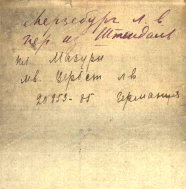 Мерзебург л. в
пер. из Штендаль
пл. Мазури
мв. Цербст л в
20953-85 Германия